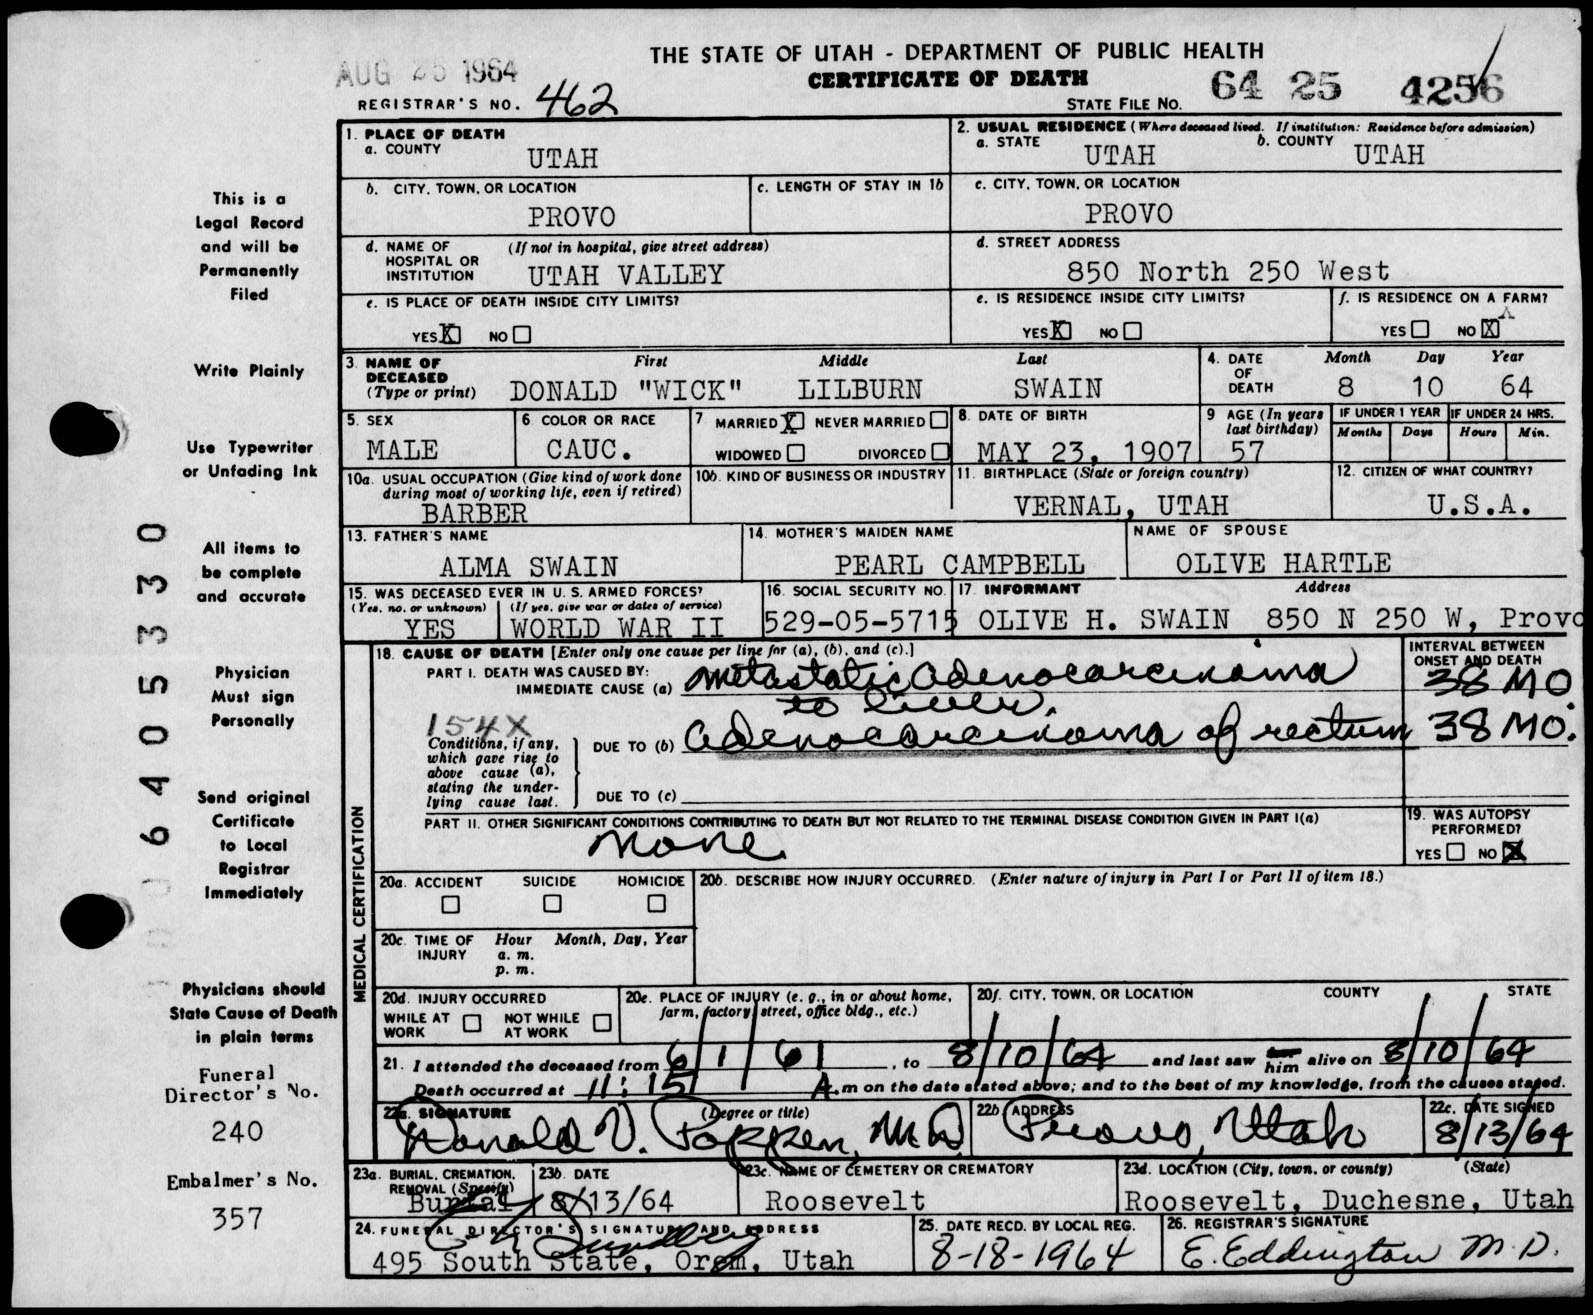 AUG 25 1964
THE STATE OF UTAH - DEPARTMENT OF PUBLIC HEALTH
CERTIFICATE OF DEATH
REGISTRAR'S NO. 462
STATE FILE NO. 64 25 4256
This is a
Legal Record
and will be
Permanently
Filed
Write Plainly
Use Typewriter
or Unfading Ink
All items to
be complete
and accurate
Physician
Must sign
Personally
Send original
Certificate
to Local
Registrar
Immediately
Physicians should
State Cause of Death
in plain terms
Funeral
Director's No.
240
Embalmer's No.
357
6405330
1. PLACE OF DEATH
a. COUNTY
UTAH
2. USUAL RESIDENCE (Where deceased lived. If institution: Residence before admission)
a. STATE
UTAH
b. COUNTY
UTAH
b. CITY, TOWN, OR LOCATION
PROVO
c. LENGTH OF STAY IN 1b
c. CITY, TOWN, OR LOCATION
PROVO
d. NAME OF HOSPITAL OR INSTITUTION
(If not in hospital, give street address)
UTAH VALLEY
d. STREET ADDRESS
850 North 250 West
e. IS PLACE OF DEATH INSIDE CITY LIMITS?
YES X NO
e. IS RESIDENCE INSIDE CITY LIMITS?
YES X NO
f. IS RESIDENCE ON A FARM?
YES NO X
3. NAME OF DECEASED (Type or print)
First Middle Last
DONALD "WICK" LILBURN SWAIN
4. DATE OF DEATH
Month Day Year
8 10 64
5. SEX
MALE
6 COLOR OR RACE
CAUC.
7 MARRIED X NEVER MARRIED
WIDOWED DIVORCED
8. DATE OF BIRTH
MAY 23, 1907
9 AGE (In years last birthday)
57
IF UNDER 1 YEAR
Months Days
IF UNDER 24 HRS.
Hours Min.
10a. USUAL OCCUPATION (Give kind of work done during most of working life, even if retired)
BARBER
10b. KIND OF BUSINESS OR INDUSTRY
11. BIRTHPLACE (State or foreign country)
VERNAL, UTAH
12. CITIZEN OF WHAT COUNTRY?
U.S.A.
13. FATHER'S NAME
ALMA SWAIN
14. MOTHER'S MAIDEN NAME
PEARL CAMPBELL
NAME OF SPOUSE
OLIVE HARTLE
15. WAS DECEASED EVER IN U. S. ARMED FORCES?
(Yes, no, or unknown) (If yes, give war or dates of service)
YES WORLD WAR II
16. SOCIAL SECURITY NO.
529-05-5715
17. INFORMANT Address
OLIVE H. SWAIN 850 N 250 W, Provo
MEDICAL CERTIFICATION
18. CAUSE OF DEATH [Enter only one cause per line for (a), (b), and (c).]
INTERVAL BETWEEN ONSET AND DEATH
PART I. DEATH WAS CAUSED BY:
IMMEDIATE CAUSE (a) Metastatic adenocarcinoma 38 MO.
to liver.
154X
Conditions, if any, which gave rise to above cause (a), stating the underlying cause last.
DUE TO (b) Adenocarcinoma of rectum 38 MO.
DUE TO (c)
PART II. OTHER SIGNIFICANT CONDITIONS CONTRIBUTING TO DEATH BUT NOT RELATED TO THE TERMINAL DISEASE CONDITION GIVEN IN PART I(a)
None
19. WAS AUTOPSY PERFORMED?
YES NO X
20a. ACCIDENT SUICIDE HOMICIDE
20b. DESCRIBE HOW INJURY OCCURRED. (Enter nature of injury in Part I or Part II of item 18.)
20c. TIME OF INJURY
Hour Month, Day, Year
a. m.
p. m.
20d. INJURY OCCURRED
WHILE AT WORK NOT WHILE AT WORK
20e. PLACE OF INJURY (e. g., in or about home, farm, factory, street, office bldg., etc.)
20f. CITY, TOWN, OR LOCATION COUNTY STATE
21. I attended the deceased from 6/1/61, to 8/10/64 and last saw her him alive on 8/10/64
Death occurred at 11:15 A.m on the date stated above; and to the best of my knowledge, from the causes stated.
22a. SIGNATURE (Degree or title)
Donald V. Poppen, M.D.
22b ADDRESS
Provo, Utah
22c. DATE SIGNED
8/13/64
23a. BURIAL, CREMATION, REMOVAL (Specify)
Burial
23b. DATE
8/13/64
23c. NAME OF CEMETERY OR CREMATORY
Roosevelt
23d. LOCATION (City, town, or county) (State)
Roosevelt, Duchesne, Utah
24. FUNERAL DIRECTOR'S SIGNATURE AND ADDRESS
Sundberg
495 South State, Orem, Utah
25. DATE RECD. BY LOCAL REG.
8-18-1964
26. REGISTRAR'S SIGNATURE
E. Eddington M.D.